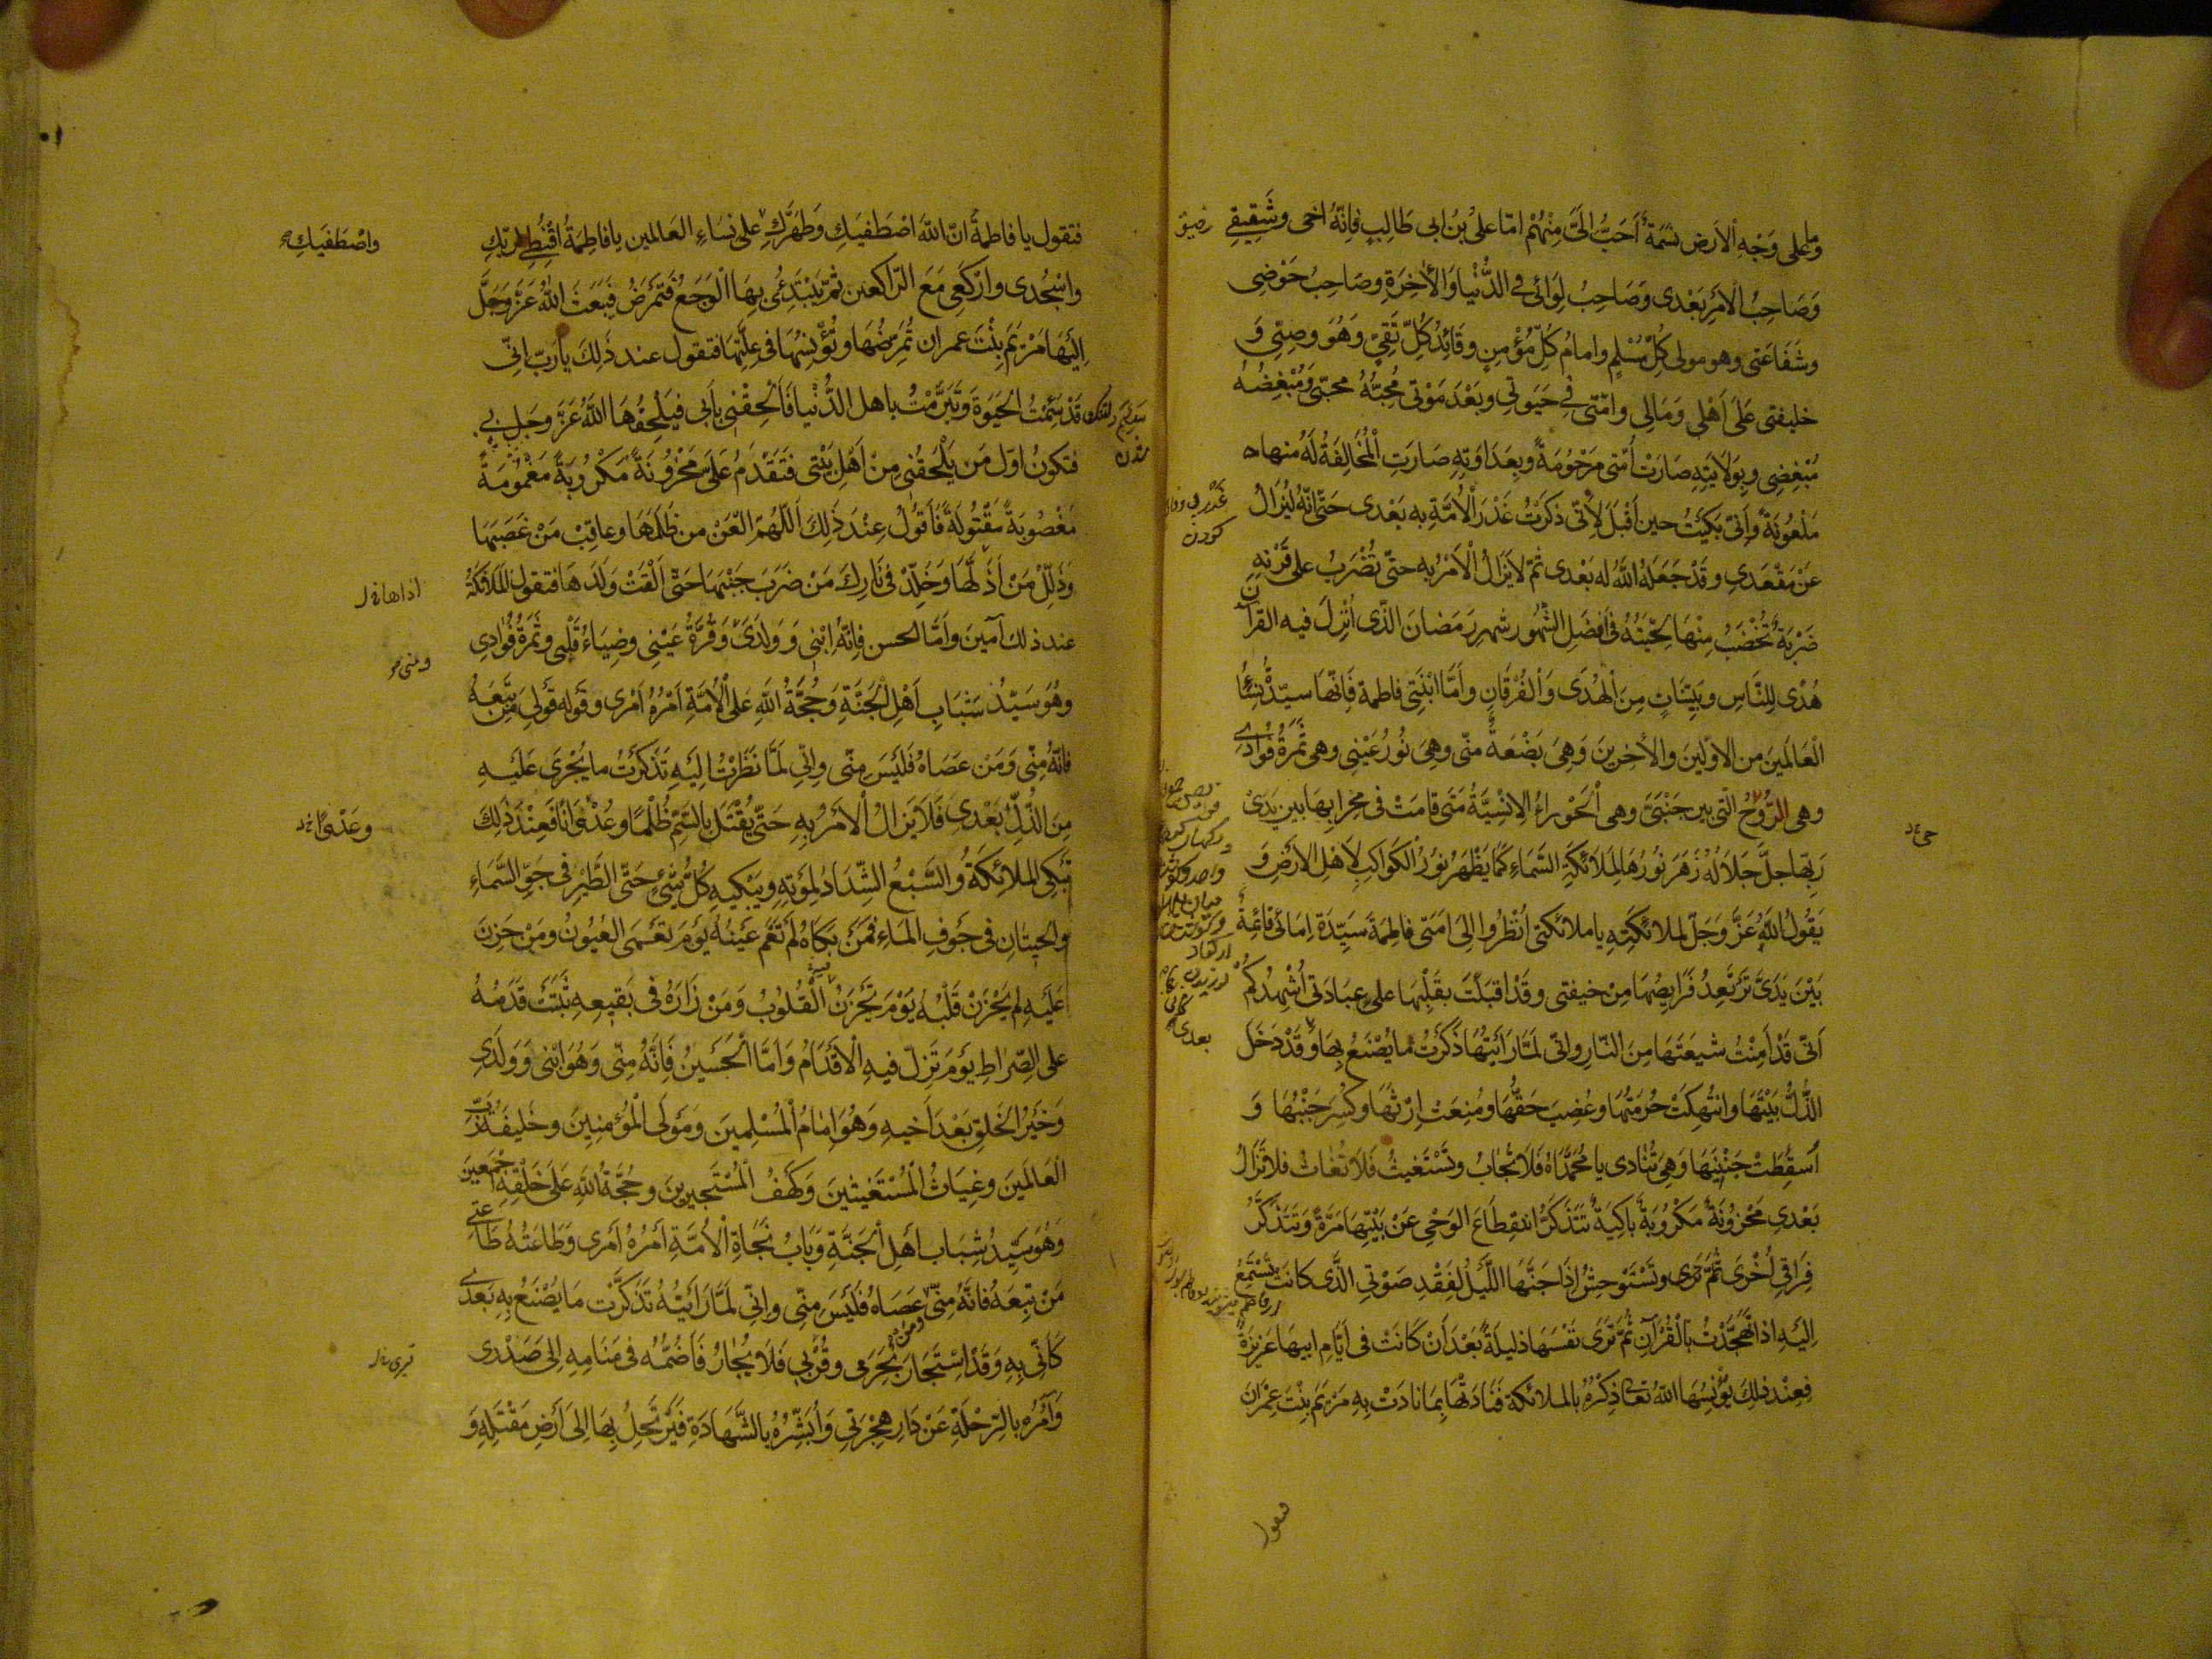 وما على وَجْهِ الْاَرض نَسَمَةٌ اَحَبُّ اِلَیَّ مِنْهُمْ امّا علیُّ بْنُ ابی طَالِبٍ فَاِنَّهُ اخی وشَقِیقِی
وَصَاحِبُ الْاَمْرِ بَعْدی وَصَاحِبُ لِوَائی فِی الدُّنْیا وَالْاٰخِرَةِ وصَاحِبُ حَوْضِی
وشَفَاعَتی وهو مولی كُلِّ مُسْلِمٍ وامامُ كُلِّ مُؤْمِنٍ وقَائِدُ كُلِّ تَقِیٍّ وَهُوَ وصِیّی وَ
خلیفتی عَلَى اَهْلِی وَمَالِی وامّتی فِی حَیٰوتِی وبَعْدَ مَوْتی مُحِبُّهُ محبّی وَمُبْغِضُهُ
مُبْغِضِی وبِوَلَایَتِهِ صَارَتْ اُمّتی مَرْحُومَةً وبِعَدَاوَتِهِ صَارَتِ الْمُخَالِفَةُ لَهُ منها
مَلْعُونَةً وَاِنّی بَكَیْتُ حین اَقْبَلَ لِاَنّی ذَكَرْتُ غَدْرَ الْاُمَّةِ به بَعْدی حَتّی اِنّهُ لَیُزَالُ
عَنْ مَقْعَدِی وقَدْ جَعَلَهُ اللّٰهُ له بَعْدی ثمّ لَا یَزَالُ الْاَمْرُ بِهِ حتّی یُضْرَبُ علی قَرْنِهِ
ضَرْبَةً تُخْضَبُ مِنْهَا لِحْیَتُهُ فی اَفْضَلِ الشُّهُورِ شهرِ رَمَضانَ الَّذی اُنْزِلَ فیه القرآن
هُدًی لِلنَّاسِ وبَیِّنَاتٍ مِنَ الْهُدَى وَالْفُرْقَانِ وَاَمَّا ابْنَتِی فاطمة فَاِنَّهَا سیّدَةُ نِسَاءِ
الْعَالَمینَ من الاوّلینَ والاٰخِرینَ وَهِیَ بَضْعَةٌ منّی وهِیَ نُورُ عَیْنِی وهی ثَمَرَةُ فُؤَادِی
وهی الرُّوحُ الّتی بین جَنْبَیَّ وهی الْحَوْراءُ الاِنْسِیَّةُ مَتَى قامَتْ فی محرابِهَا بین یَدَیْ
رَبّها جلّ جَلَالُهُ زَهَرَ نُورُهَا لِمَلَائِكَةِ السَّمَاءِ كَمَا یَظْهَرُ نُورُ الْكَوَاكِبِ لِاَهْلِ الْاَرْضِ وَ
یَقُولُ اللّٰهُ عَزَّ وَجَلَّ لِمَلَائِكَتِهِ یا ملائكتی اُنْظُرُوا اِلَى اَمَتی فاطِمَةَ سَیِّدَةِ اِمَائی قَائِمَةً
بَیْنَ یَدَیَّ تَرْتَعِدُ فَرَایِصُهَا مِنْ خیفتی وقَدْ اَقْبَلَتْ بِقَلْبِهَا علی عِبَادَتی اُشْهِدُكُمْ
اَنّی قَدْ اَمِنْتُ شیعَتَها مِنَ النّارِ وانّی لَمّا رَاَیْتُهَا ذَكَرْتُ ما یُصْنَعُ بِهَا وقَدْ دَخَلَ
الذُّلُّ بَیْتَهَا وانْتُهِكَتْ حُرمَتُهَا وغُصِبَ حَقُّهَا ومُنِعَتْ اِرْثَهَا وكُسِرَ جَنْبُهَا وَ
اُسْقِطَتْ جَنِینَهَا وَهِیَ تُنَادی یا مُحَمَّدَاهُ فَلَا تُجَابُ وتَسْتَغیثُ فَلَا تُغاثُ فَلَا تَزَالُ
بَعْدِی مَحْزُونَةً مَكْرُوبَةً بَاكِیَةً تَتَذَكَّرُ انْقِطَاعَ الْوَحْیِ عَنْ بَیْتِهَا مَرَّةً وَتَتَذَكَّرُ
فِرَاقِی اُخْرَى ثُمَّ تَرَی وتَسْتَوْحِشُ اِذَا جَنَّهَا اللَّیْلُ لِفَقْدِ صَوْتِی الَّذی كانَتْ تَسْتَمِعُ
اِلَیْهِ اِذَا تَهَجَّدْتُ بِالْقُرْآنِ ثُمَّ تَرَى نَفْسَهَا ذلیلَةً بَعْدَ اَنْ كَانَتْ فی اَیّامِ ابیهَا عَزِیزَةً
فعِنْدَ ذلِكَ یُؤْنِسُهَا اللّٰهُ تَعَالی ذِكْرُهُ بِالملائكة فَنَادَتْهَا بِمَا نَادَتْ بِهِ مَرْیَمَ بِنْتَ عِمْرَانَ
فتقول
فتقول یا فاطمةُ انّ اللّٰهَ اصْطَفیكِ وَطَهَّرَكِ علی نِسَاءِ العَالمین یا فاطِمَةُ اقْنُتِی لِرَبِّكِ
واصْطَفَیكِ
واسْجُدی وارْكَعِی مَعَ الرّاكعین ثمّ یَبْتَدِئُ بِهَا الْوَجَعُ فَتَمْرَضُ فَیَبْعَثُ اللّٰهُ عَزَّ وَجَلَّ
اِلَیْهَا مَرْیَمَ بِنْتَ عمران تُمَرِّضُهَا وتُؤْنِسُهَا فی عِلَّتِهَا فتقول عند ذٰلِكَ یا رَبّ انّی
قَدْ سَئِمْتُ الحَیٰوةَ وَتَبَرَّمْتُ باهل الدُّنْیا فَاَلْحِقْنی بِاَبی فَیُلْحِقُهَا اللّٰهُ عَزَّ وجَل بی
فتكونُ اوّلَ مَن یَلْحَقُنی مِنْ اَهْلِ بَیْتی فَتَقْدَمُ عَلَیَّ مَحْزُونَةً مَكْرُوبَةً مَغْمُومَةً
مَغْصُوبَةً مَقْتُولَةً فَاَقولُ عِنْدَ ذٰلِكَ اَللّٰهُمَّ الْعَنْ من ظَلَمَهَا وعاقِبْ مَنْ غَصَبَهَا
وَذَلِّلْ مَنْ اَذَلَّهَا وَخَلِّدْ فی نَارِكَ مَنْ ضَرَبَ جَنْبَهَا حَتّی اَلْقَتْ وَلَدَهَا فتقول الملائكةُ
عند ذلك آمینَ وَاَمَّا الحسن فَاِنّهُ ابْنِی وَوَلَدِی وَقُرَّةُ عَیْنِی وضِیَاءُ قَلْبِی وثَمَرَةُ فُؤادِی
وهُوَ سَیّدُ شَبَابِ اَهْلِ الْجَنَّةِ وَحُجَّةُ اللّٰهِ عَلَى الْاُمَّةِ اَمْرُهُ اَمْری وقَوْلُه قَوْلی مَن تَبِعَهُ
فَاِنَّهُ مِنّی وَمَنْ عَصَاهُ فَلَیْسَ مِنّی وانّی لَمَّا نَظَرْتُ اِلَیْهِ تَذَكَّرْتُ ما یَجْرِی عَلَیْهِ
مِنَ الذُّلِّ بَعْدِی فَلَا یَزَالُ الْاَمْرُ بِهِ حَتّی یُقْتَلَ بِالسَّمِّ ظُلْمًا وعُدْوَانًا فَعِنْدَ ذٰلِكَ
تَبْكِی الملائِكَةُ والسَّبْعُ الشِّدَادُ لِمَوْتِهِ ویَبْكیهِ كُلُّ شَیْءٍ حَتّی الطَّیْرُ فی جَوِّ السَّمَاءِ
والحیتانُ فی جَوفِ المَاءِ فَمَنْ بَكَاهُ لَمْ تَعْمَ عَیْنُهُ یَوْمَ تَعْمَى العُیُونُ ومَنْ حَزِنَ
عَلَیْهِ لَمْ یَحْزَنْ قَلْبُهُ یَوْمَ تَحْزَنُ الْقُلُوبُ وَمَنْ زَارَهُ فی بَقیعِهِ ثَبَتَتْ قَدَمُهُ
علی الصِّرَاطِ یَوْمَ تَزِلّ فیهِ الْاَقْدَامُ وَاَمَّا الْحُسَیْنُ فَاِنَّهُ مِنّی وَهُوَ ابْنی وَوَلَدِی
وَخَیْرُ الخَلقِ بَعْدَ اَخیهِ وَهُوَ اِمَامُ الْمُسْلِمینَ وَمَوْلَى الْمُؤمِنِینَ وخَلیفَةُ رَبِّ
الْعَالَمینَ وغِیَاثُ الْمُسْتَغیثینَ وَكَهْفُ الْمُسْتَجیرینَ وحُجَّةُ اللّٰهِ عَلَى خَلْقِهِ اَجْمَعینَ
وَهُوَ سَیِّدُ شَبَابِ اَهْلِ الْجَنَّةِ وَبَابُ نَجَاةِ الْاُمَّةِ اَمْرُهُ اَمْری وَطَاعَتُهُ طَاعَتی
مَنْ تَبِعَهُ فَاِنَّهُ مِنّی وَمَنْ عَصَاهُ فَلَیْسَ مِنّی وانّی لَمَّا رَاَیْتُهُ تَذَكَّرْتُ مَا یُصْنَعُ بِهِ بَعْدی
كَاَنّی بِهِ وَقَدْ اسْتَجَارَ بِحَرَمِی وقُرْبِی فَلَا یُجَارُ فَاَضُمُّهُ فی مَنَامِهِ الی صَدْری
وَآمُرُهُ بِالرِّحْلَةِ عَنْ دَارِ هِجْرَتِی وَاُبَشِّرُهُ بالشَّهَادَةِ فَیَرْتَحِلُ بِهَا اِلى اَرْضِ مَقْتَلِهِ وَ